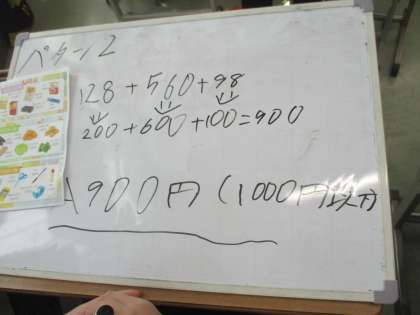 パターン2
128+560+98
200+600+100=900
A 900円(1000円以内)